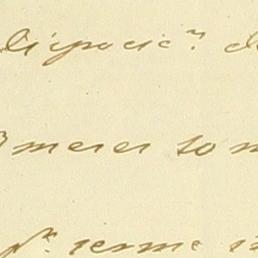 disposic.ⁿ d
meses to m
p.ʳ terme i